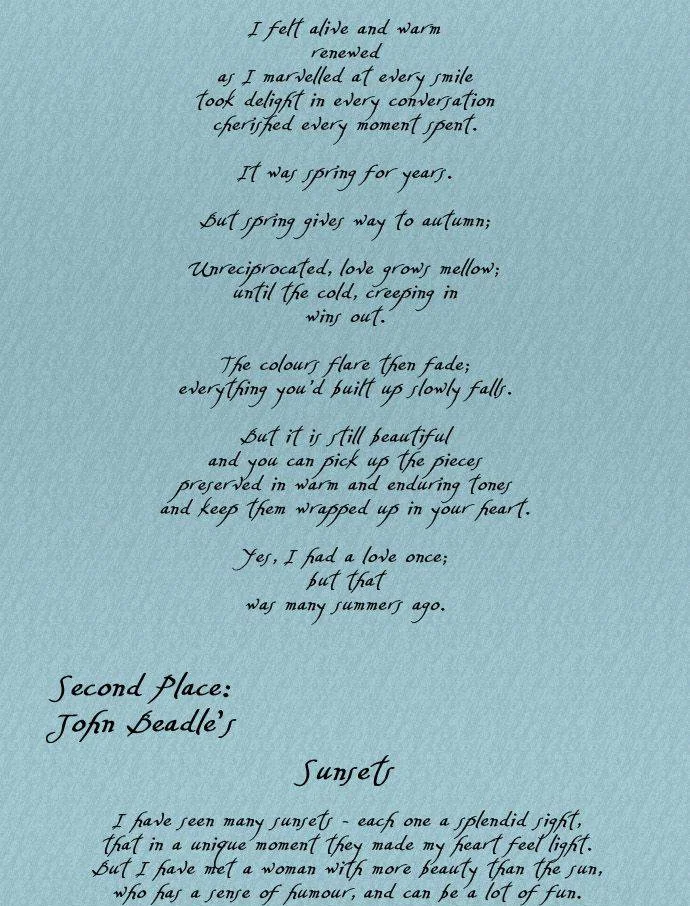 I felt alive and warm
renewed
as I marvelled at every smile
took delight in every conversation
cherished every moment spent.
It was spring for years.
But spring gives way to autumn;
Unreciprocated, love grows mellow;
until the cold, creeping in
wins out.
The colours flare then fade;
everything you'd built up slowly falls.
But it is still beautiful
and you can pick up the pieces
preserved in warm and enduring tones
and keep them wrapped up in your heart.
Yes, I had a love once;
but that
was many summers ago.
Second Place:
John Beadle's
Sunsets
I have seen many sunsets - each one a splendid sight,
that in a unique moment they made my heart feel light.
But I have met a woman with more beauty than the sun,
who has a sense of humour, and can be a lot of fun.